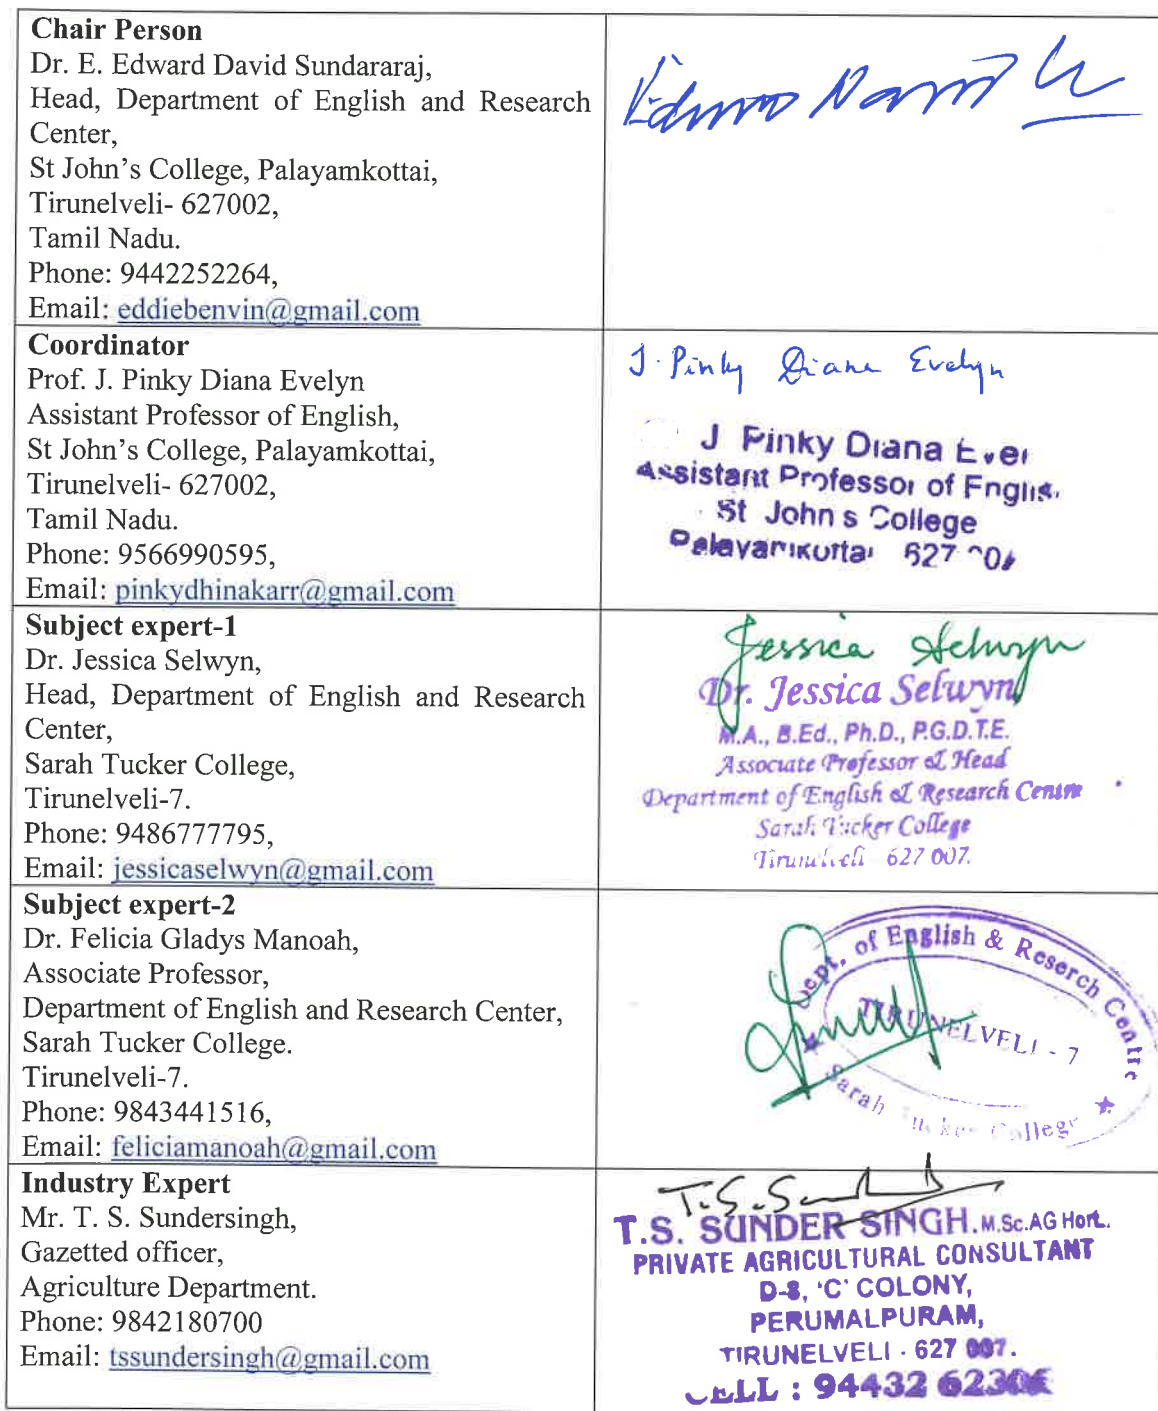 Chair Person
Dr. E. Edward David Sundararaj,
Head, Department of English and Research
Center,
St John's College, Palayamkottai,
Tirunelveli- 627002,
Tamil Nadu.
Phone: 9442252264,
Email: eddiebenvin@gmail.com
Coordinator
Prof. J. Pinky Diana Evelyn
Assistant Professor of English,
St John's College, Palayamkottai,
Tirunelveli- 627002,
Tamil Nadu.
Phone: 9566990595,
Email: pinkydhinakarr@gmail.com
J. Pinky Diana Evelyn
J Pinky Diana
Assistant Professor of
St John s College
627
Subject expert-1
Dr. Jessica Selwyn,
Head, Department of English and Research
Center,
Sarah Tucker College,
Tirunelveli-7.
Phone: 9486777795,
Email: jessicaselwyn@gmail.com
Jessica Selwyn
Dr. Jessica Selwyn
M.A., B.Ed., Ph.D., P.G.D.T.E.
Associate Professor & Head
Department of English & Research Centre
Sarah Tucker College
Tirunelveli 627 007.
Subject expert-2
Dr. Felicia Gladys Manoah,
Associate Professor,
Department of English and Research Center,
Sarah Tucker College.
Tirunelveli-7.
Phone: 9843441516,
Email: feliciamanoah@gmail.com
Dept. of English & Reserch Centre
TIRUNELVELI - 7
Sarah Tucker College
Industry Expert
Mr. T. S. Sundersingh,
Gazetted officer,
Agriculture Department.
Phone: 9842180700
Email: tssundersingh@gmail.com
T.S. SUNDER SINGH. M.Sc.AG Hort.
PRIVATE AGRICULTURAL CONSULTANT
D-8, 'C' COLONY,
PERUMALPURAM,
TIRUNELVELI - 627 007.
CELL : 94432 62306